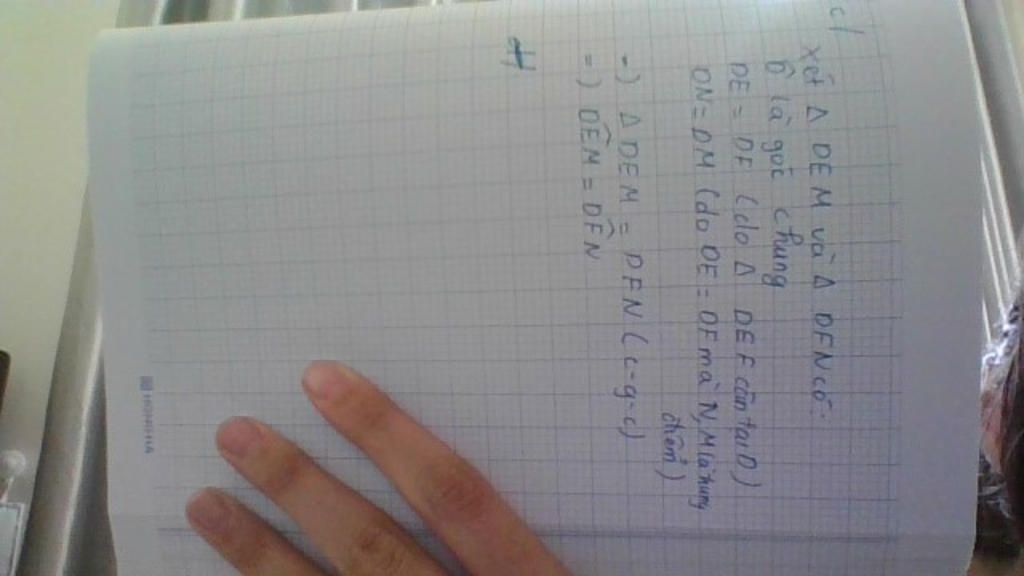 c/
Xét Δ DEM và Δ DFN có:
D̂ là góc chung
DE = DF (do Δ DEF cân tại D)
DN = DM (do DE = DF mà N, M là trung
điểm)
=) Δ DEM = DFN (c-g-c)
=) DÊM = DF̂N
HONG HA